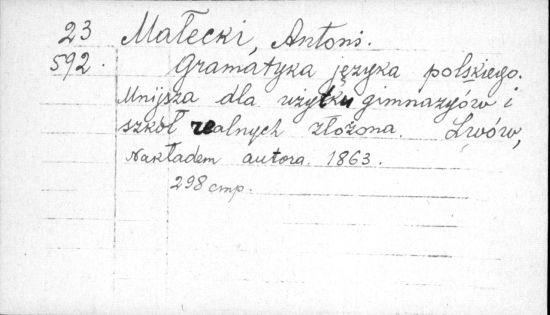 23 Małecki, Antoni.
592. Gramatyka języka polskiego.
Mniejsza dla użytku gimnazyów i
szkół realnych złożona. Lwów,
Nakładem autora. 1863.
298 стр.